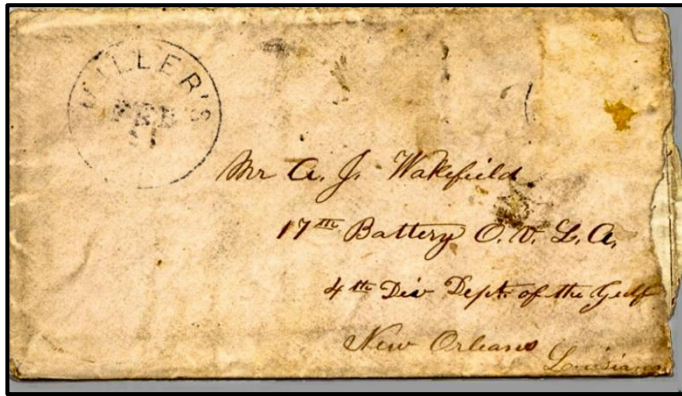 MILLER'S
FEB
Mr A. J. Wakefield
17th Battery O. V. L. A.
4th Div Dept. of the Gulf
New Orleans
Louisiana